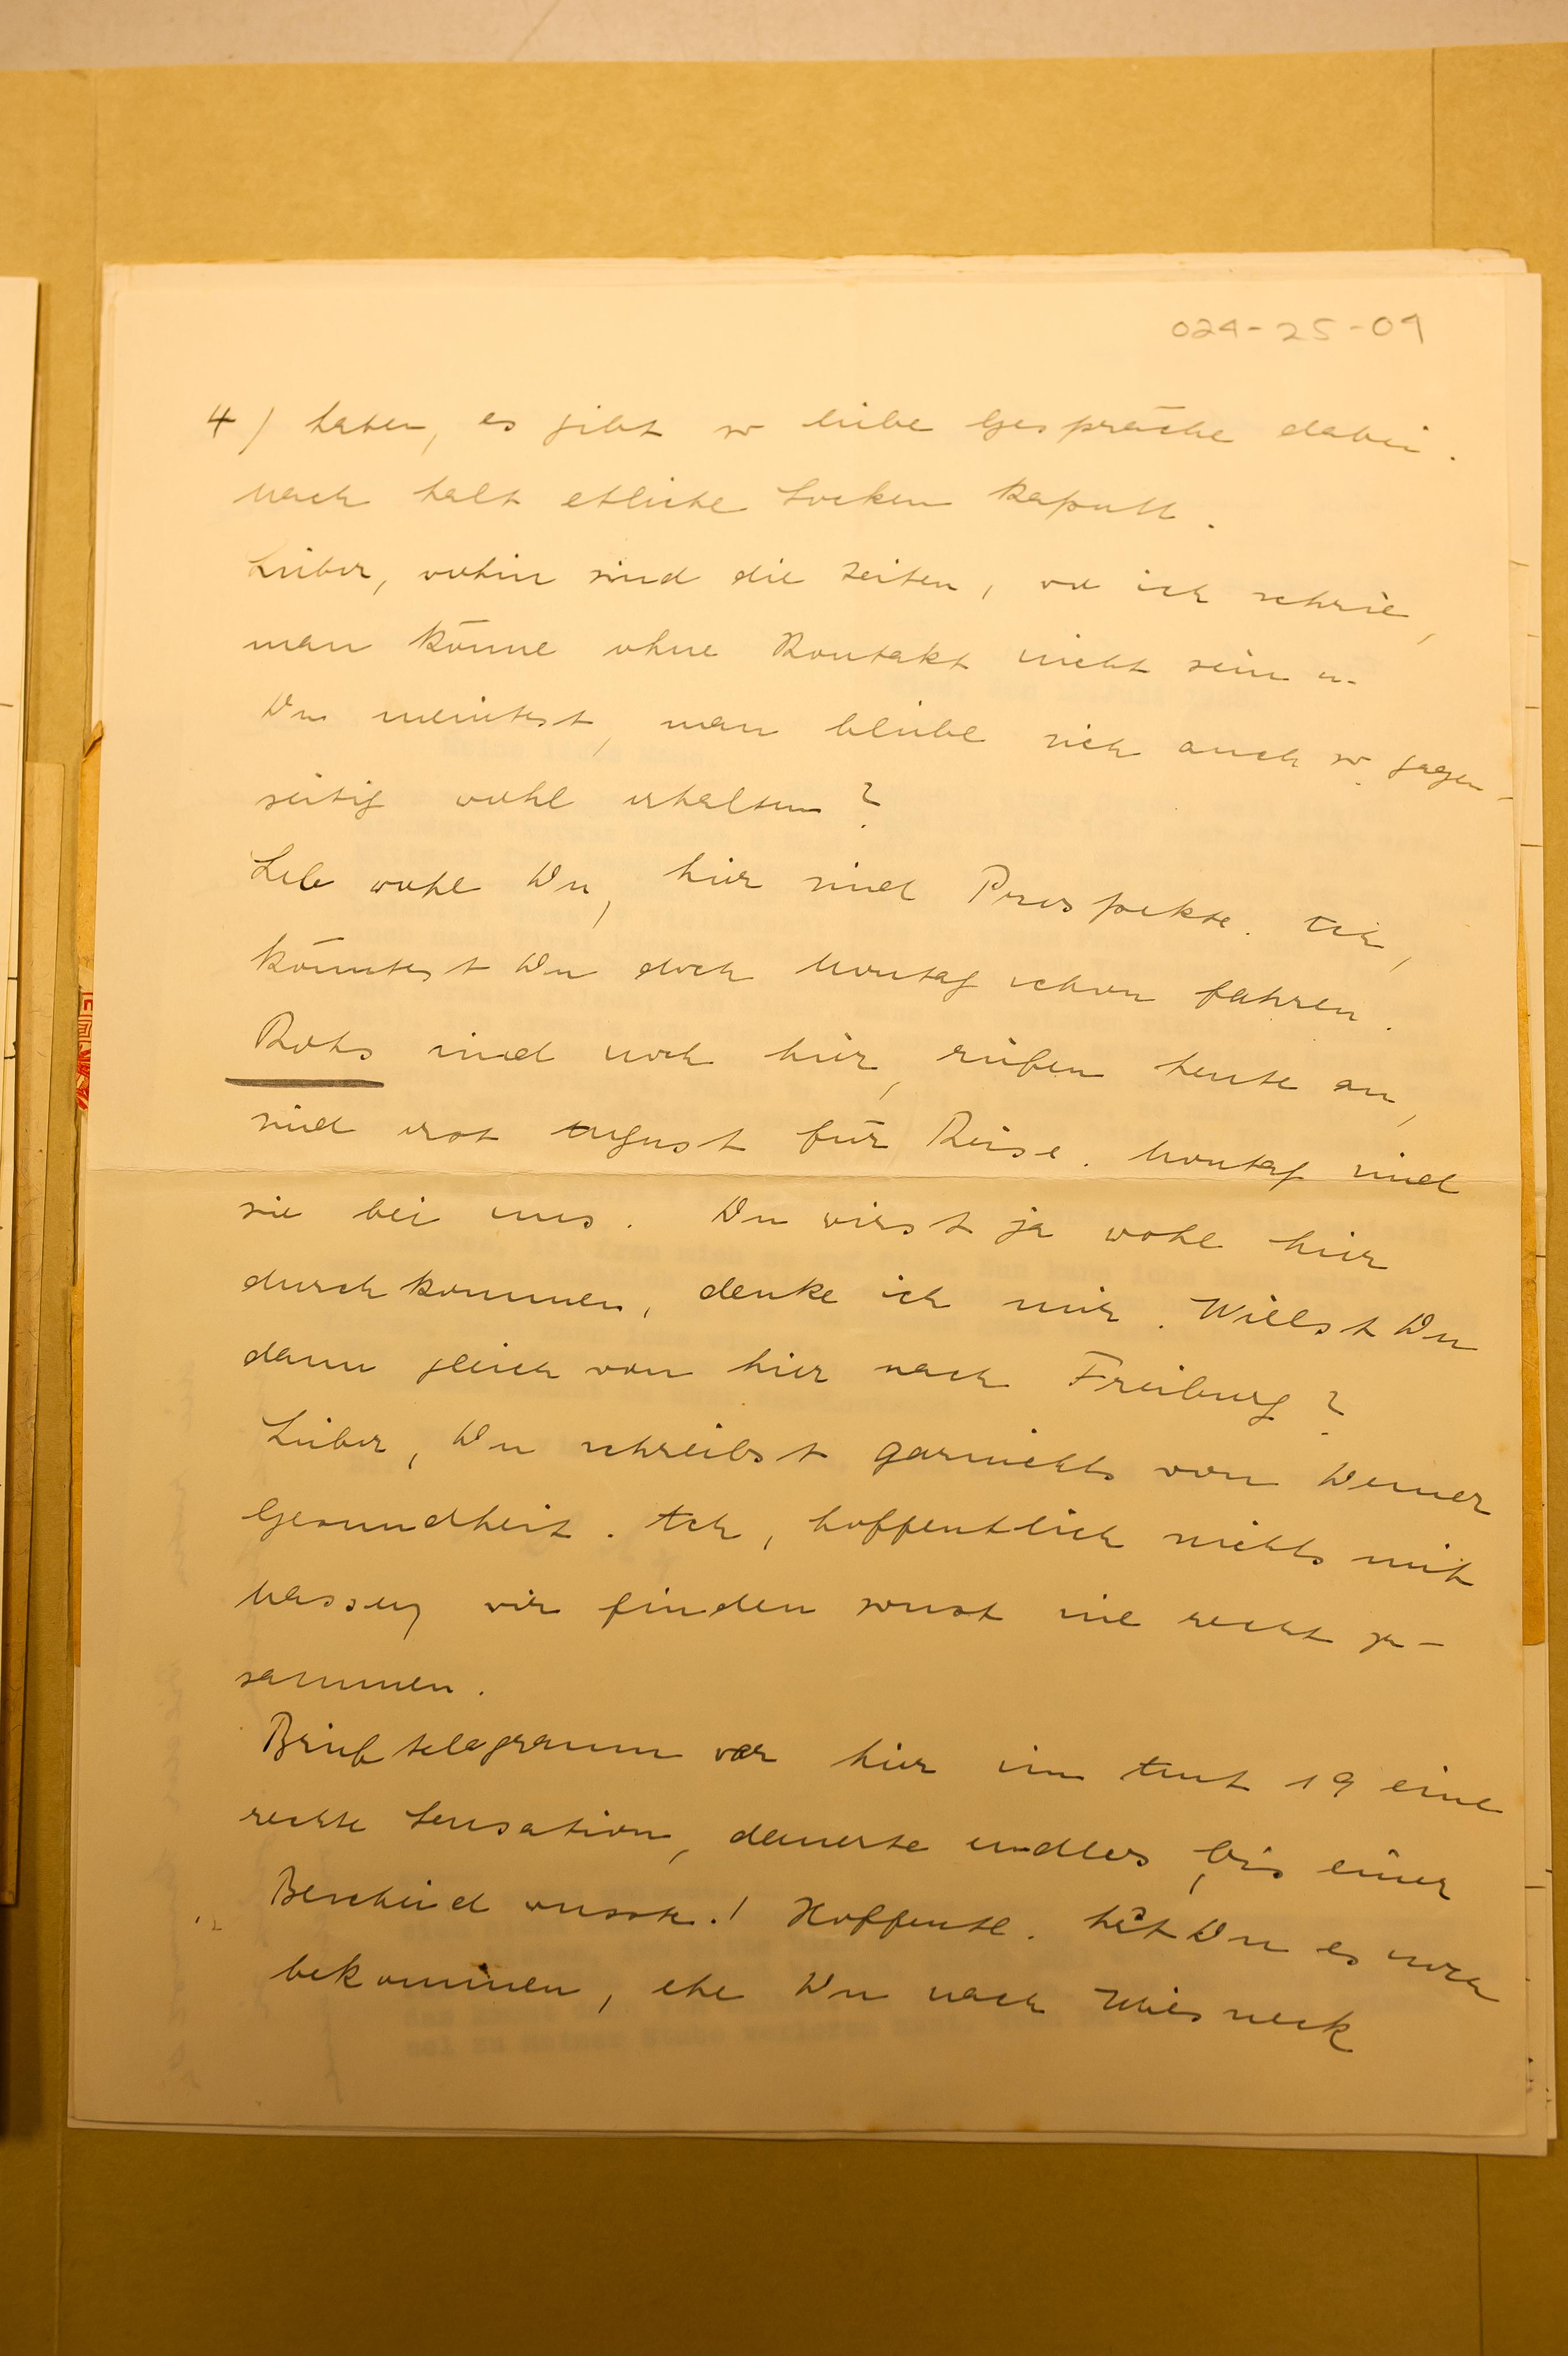 024-25-09
4) haben, es gibt so liebe Gespräche dabei.
Mach halt etliche Socken kaputt.
Lieber, wohin sind die Zeiten, wo ich schrie,
man könne ohne Kontakt nicht sein u.
Du meintest, man bleibe sich auch so gegen-
seitig wohl erhalten?
Leb wohl Du, hier sind Prospekte. Ach,
könntest Du doch Montag schon fahren.
Rohs sind noch hier, riefen heute an,
sind erst August für Reise. Montag sind
sie bei uns. Du wirst ja wohl hier
durchkommen, denke ich mir. Willst Du
dann gleich von hier nach Freiburg?
Lieber, Du schreibst garnichts von Deiner
Gesundheit. Ach, hoffentlich nichts mit
wir finden sonst nie recht zu-
sammen.
Brieftelegramm war hier im Amt 19 eine
rechte Sensation, dauerte endlos, bis einer
Bescheid wusste.! Hoffentl. hast Du es noch
bekommen, ehe Du nach Wiesneck